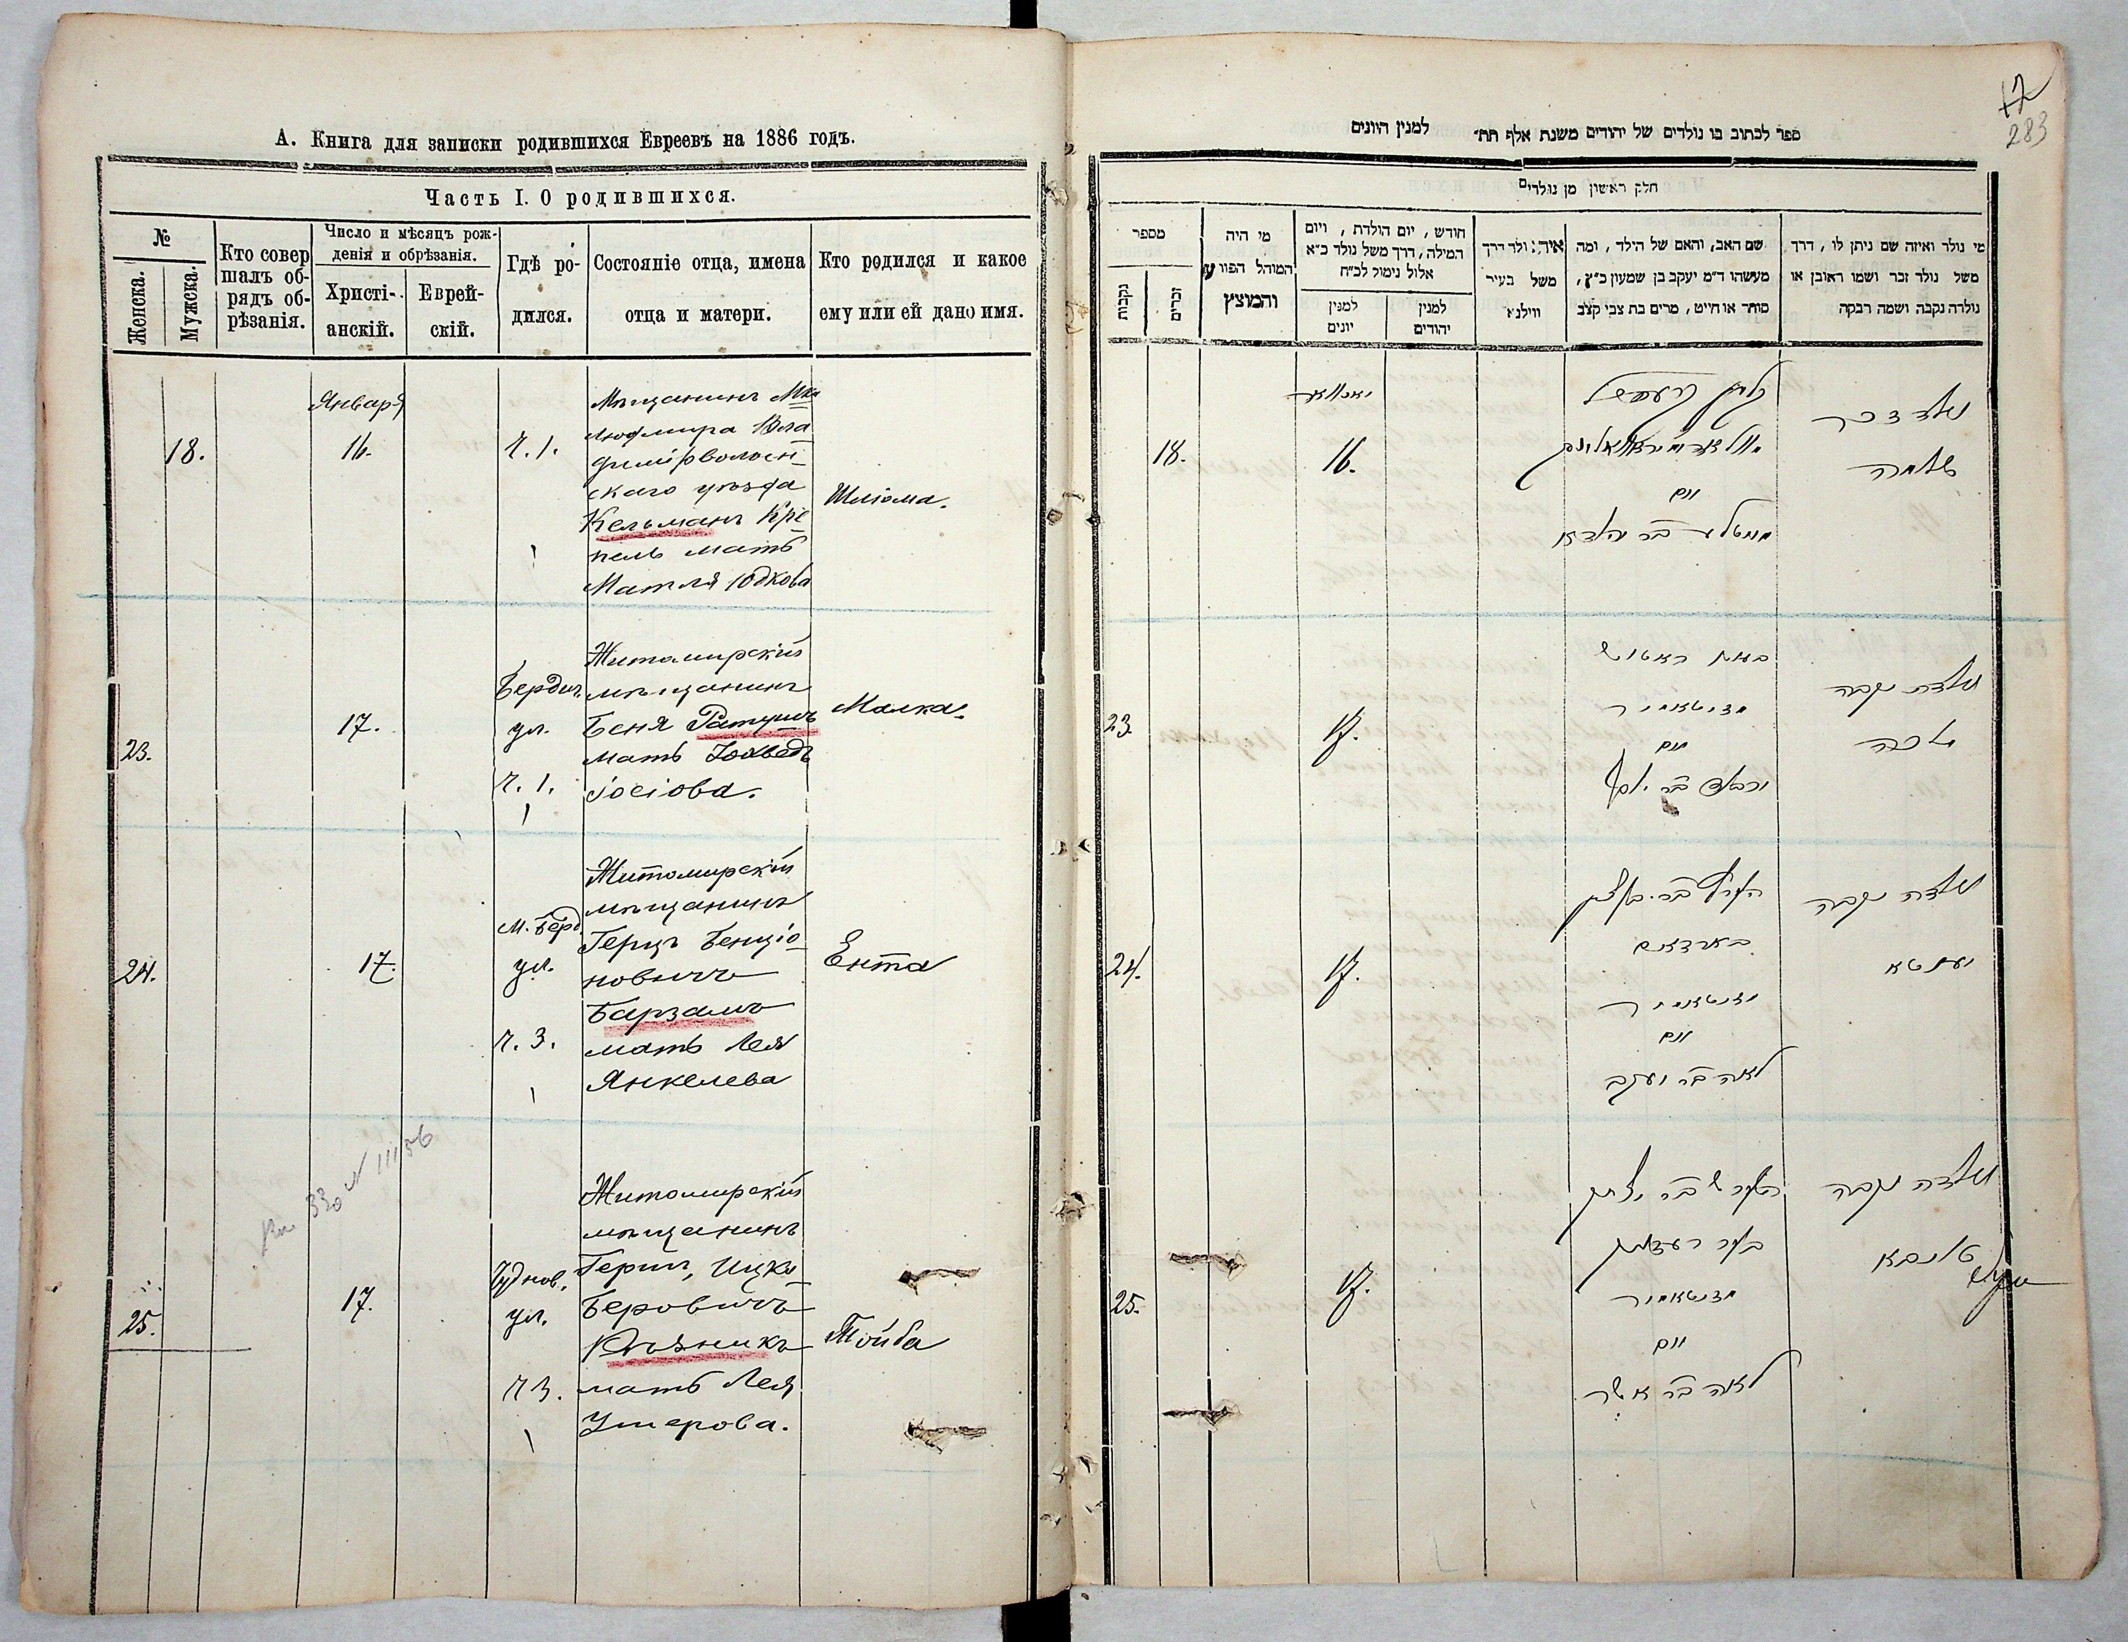 А. Книга для записки родившихся Евреевъ на 1886 годъ.
Часть I. О родившихся.
№
Женска.
Мужска.
Кто совер
шалъ об-
рядъ об-
рѣзанія.
Число и мѣсяцъ рож-
денія и обрѣзанія.
Христі-
анскій.
Еврей-
скій.
Гдѣ ро-
дился.
Состояніе отца, имена
отца и матери.
Кто родился и какое
ему или ей дано имя.
18.
Января
16.
Ч. 1.
Мѣщанинъ
Вла
димірволын
скаго уѣзда
Кельманъ
мать
Матля Юдкова
Шліома.
23.
17.
Бердич.
ул.
Ч. 1.
Житомирскій
мѣщанинъ
Беня Ратушъ
мать Іохведъ
Іосіова.
Малка.
24.
17.
М. Берд.
ул.
Ч. 3.
Житомирскій
мѣщанинъ
Герцъ Бенціо
новичъ
Барзамъ
мать Лея
Янкелева
Ента
330 № 11156
25.
17.
Чуднов.
ул.
Ч 3.
Житомирскій
мѣщанинъ
Герш, Ицко
Беровичъ
мать Лея
Ушерова.
Тойба
283
ספר לכתוב בו נולדים של יהודים משנת אלף תת״ למנין היונים
חלק ראשון מן נולדים
מי נולד ואיזה שם ניתן לו, דרך
משל נולד זכר ושמו ראובן או
נולדה נקבה ושמה רבקה
שם האב, והאם של הילד, ומה
מעשהו ד״מ יעקב בן שמעון כ״ץ,
סוחר או חייט, מרים בת צבי קצב
איה נולד דרך
משל בעיר
ווילנא
חודש, יום הולדת, ויום
המילה, דרך משל נולד כ״א
אלול נימול לכ״ח
למנין
יהודים
למנין
יונים
מי היה
המוהל הפורע
והמוצץ
מספר
זכרים
נקבות
18.
יאנואר
16.
ואם
נולד זכר
שלמה
23.
17.
בענע ראטוש
מזיטאמיר
ואם
יוכבד בת יוסף
נולדה נקבה
מלכה
24.
17.
מזיטאמיר
ואם
לאה בת יעקב
נולדה נקבה
יענטא
25.
17.
מזיטאמיר
ואם
לאה בת אשר
נולדה נקבה
טויבא